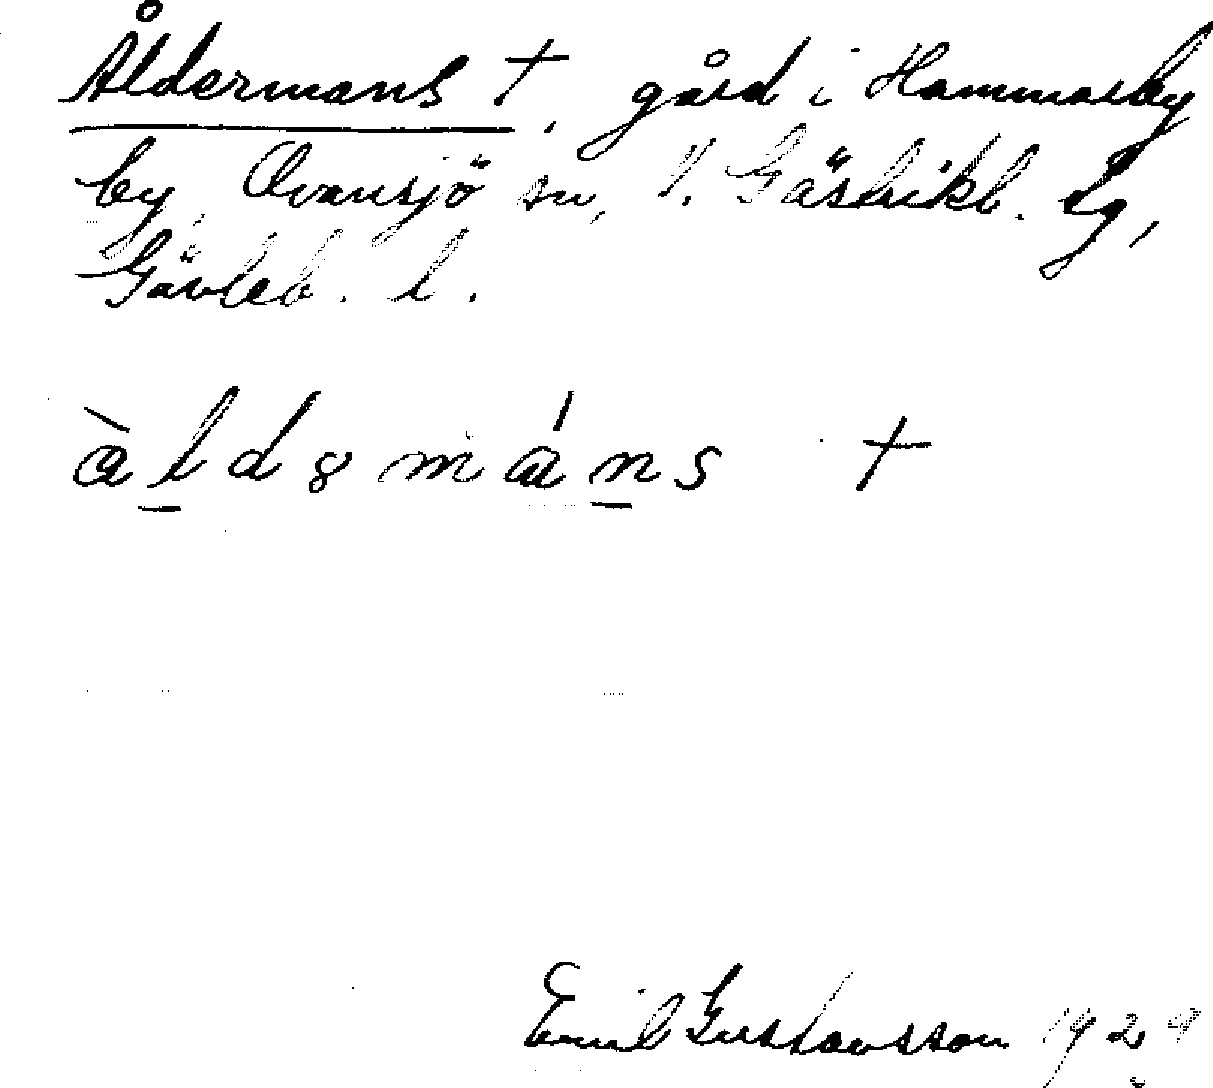 Åldermans †, gård i Hammarby
by, Ovansjö sn, V. Gästrikl. tg,
Gävleb. l.
àldəmáns †
Emil Gustavsson 1929